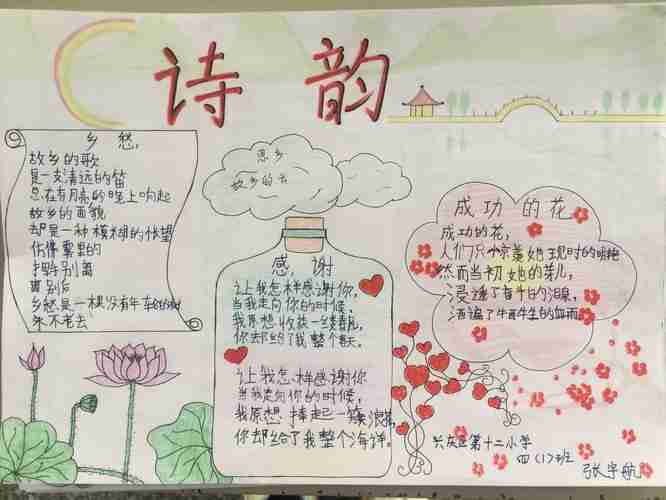 诗韵
乡愁
故乡的歌
是一支清远的笛
总在有月亮的晚上响起
故乡的面貌
却是一种模糊的怅望
仿佛雾里的
挥手别离
离别后
乡愁是一棵没有年轮的树
永不老去
思乡
故乡的云
感谢
让我怎样感谢你,
当我走向你的时候,
我原想收获一缕春风,
你却给了我整个春天。
让我怎样感谢你
当我走向你的时候,
我原想捧起一簇浪花,
你却给了我整个海洋。
成功的花
成功的花,
人们只惊羡她现时的明艳
然而当初她的芽儿,
浸透了奋斗的泪泉,
洒遍了牺牲的血雨。
兴庆区第十二小学
四(1)班
张宇航